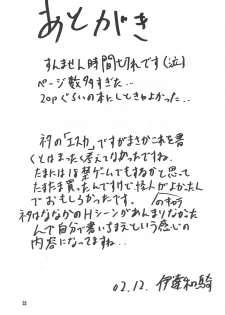 あとがき
すんません時間切れです(泣)
ページ数多すぎた…
20pぐらいの本にしときゃよかった…
ネタの「エスカ」ですがまさかこれを書
くとはまったく考えてなかったですね。
たまには18禁ゲームでもするかと思って
たまたま買ったんですけど怪人がよかったん
でおもしろかったです。
のキャラ
ネタはななかのHシーンがあんまりなかった
んで自分で書いちまえという感じの
内容になってますね…
02.12. 伊達和騎
25